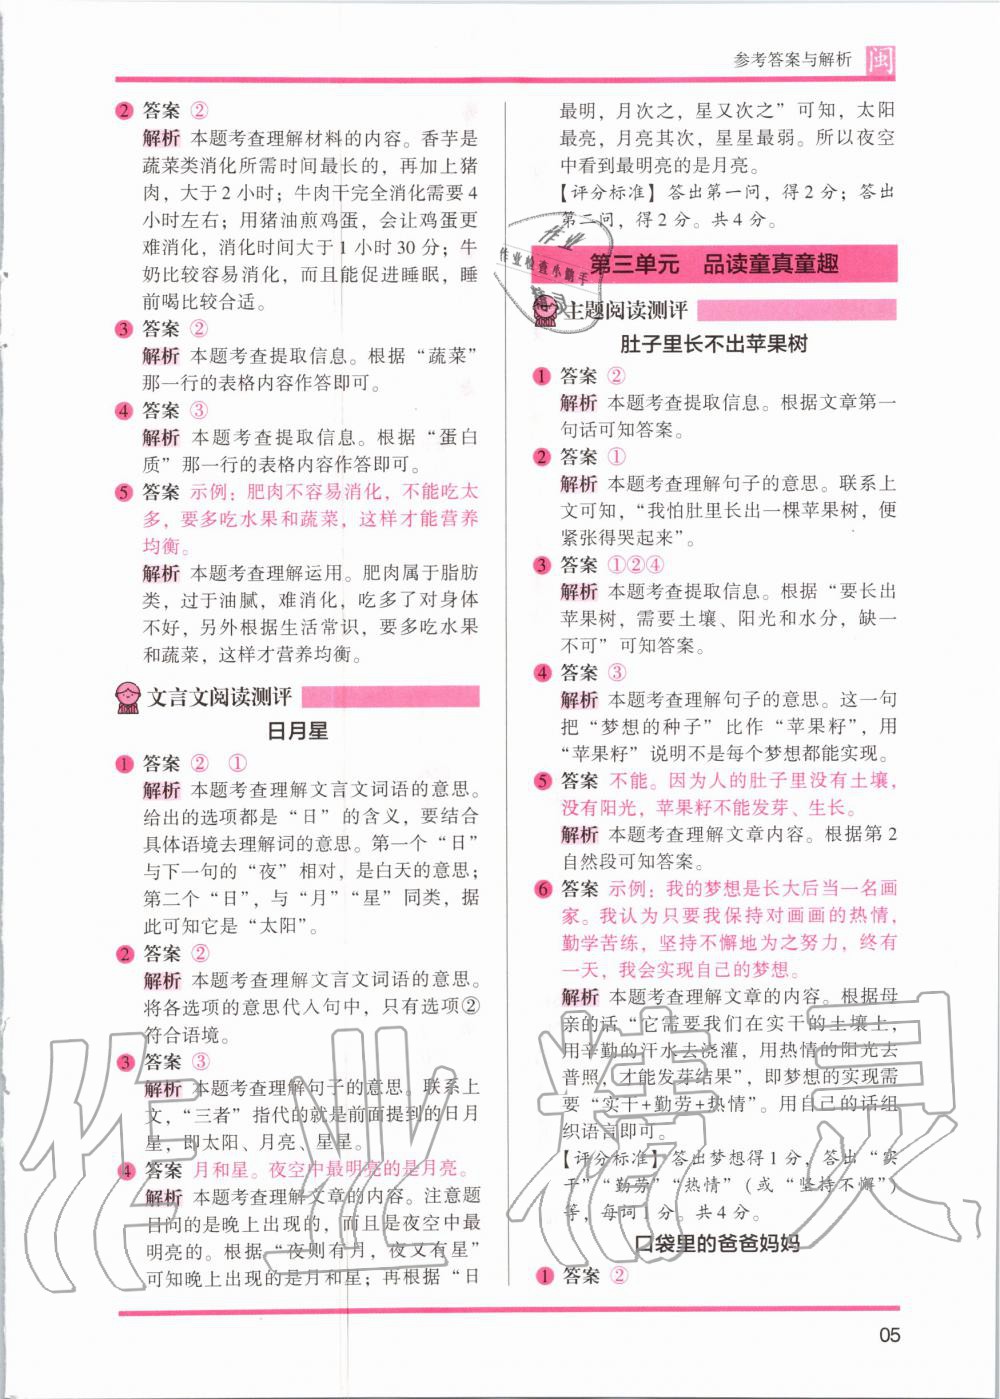 参考答案与解析 闽
2 答案 ②
解析 本题考查理解材料的内容。香芋是
蔬菜类消化所需时间最长的，再加上猪
肉，大于 2 小时；牛肉干完全消化需要 4
小时左右；用猪油煎鸡蛋，会让鸡蛋更
难消化，消化时间大于 1 小时 30 分；牛
奶比较容易消化，而且能促进睡眠，睡
前喝比较合适。
3 答案 ②
解析 本题考查提取信息。根据“蔬菜”
那一行的表格内容作答即可。
4 答案 ③
解析 本题考查提取信息。根据“蛋白
质”那一行的表格内容作答即可。
5 答案 示例：肥肉不容易消化，不能吃太
多，要多吃水果和蔬菜，这样才能营养
均衡。
解析 本题考查理解运用。肥肉属于脂肪
类，过于油腻，难消化，吃多了对身体
不好，另外根据生活常识，要多吃水果
和蔬菜，这样才营养均衡。
文言文阅读测评
日月星
1 答案 ② ①
解析 本题考查理解文言文词语的意思。
给出的选项都是“日”的含义，要结合
具体语境去理解词的意思。第一个“日”
与下一句的“夜”相对，是白天的意思；
第二个“日”，与“月”“星”同类，据
此可知它是“太阳”。
2 答案 ②
解析 本题考查理解文言文词语的意思。
将各选项的意思代入句中，只有选项②
符合语境。
3 答案 ③
解析 本题考查理解句子的意思。联系上
文，“三者”指代的就是前面提到的日月
星，即太阳、月亮、星星。
4 答案 月和星。夜空中最明亮的是月亮。
解析 本题考查理解文章的内容。注意题
目问的是晚上出现的，而且是夜空中最
明亮的。根据“夜则有月，夜又有星”
可知晚上出现的是月和星；再根据“日
最明，月次之，星又次之”可知，太阳
最亮，月亮其次，星星最弱。所以夜空
中看到最明亮的是月亮。
【评分标准】答出第一问，得 2 分；答出
第二问，得 2 分。共 4 分。
作业
作业检查小助手
第三单元 品读童真童趣
主题阅读测评
肚子里长不出苹果树
1 答案 ②
解析 本题考查提取信息。根据文章第一
句话可知答案。
2 答案 ①
解析 本题考查理解句子的意思。联系上
文可知，“我怕肚里长出一棵苹果树，便
紧张得哭起来”。
3 答案 ①②④
解析 本题考查提取信息。根据“要长出
苹果树，需要土壤、阳光和水分，缺一
不可”可知答案。
4 答案 ③
解析 本题考查理解句子的意思。这一句
把“梦想的种子”比作“苹果籽”，用
“苹果籽”说明不是每个梦想都能实现。
5 答案 不能。因为人的肚子里没有土壤，
没有阳光，苹果籽不能发芽、生长。
解析 本题考查理解文章内容。根据第 2
自然段可知答案。
6 答案 示例：我的梦想是长大后当一名画
家。我认为只要我保持对画画的热情，
勤学苦练，坚持不懈地为之努力，终有
一天，我会实现自己的梦想。
解析 本题考查理解文章的内容。根据母
亲的话“它需要我们在实干的土壤上，
用辛勤的汗水去浇灌，用热情的阳光去
普照，才能发芽结果”，即梦想的实现需
要“实干+勤劳+热情”。用自己的话组
织语言即可。
【评分标准】答出梦想得 1 分，答出“实
干”“勤劳”“热情”（或“坚持不懈”）
等，每词 1 分。共 4 分。
口袋里的爸爸妈妈
1 答案 ②
作业精灵
05